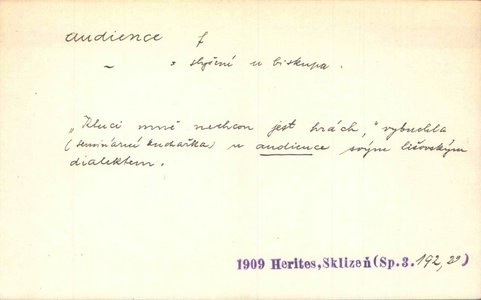 audience f
~ * slyšení u biskupa.
„Kluci mně nechcou jest hrách,“ vybuchla
(seminární kuchařka) u audience svým lišovským
dialektem.
1909 Herites, Sklizeň (Sp. 3. 192, 20)